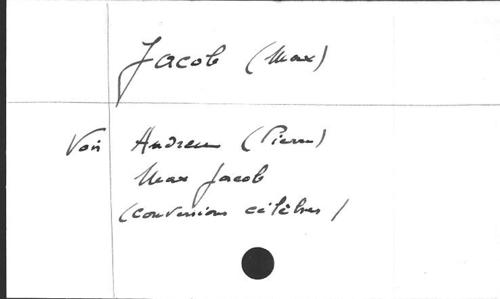 Jacob (Max)
Voir Andreu (Pierre)
Max Jacob
(conversions célèbres)